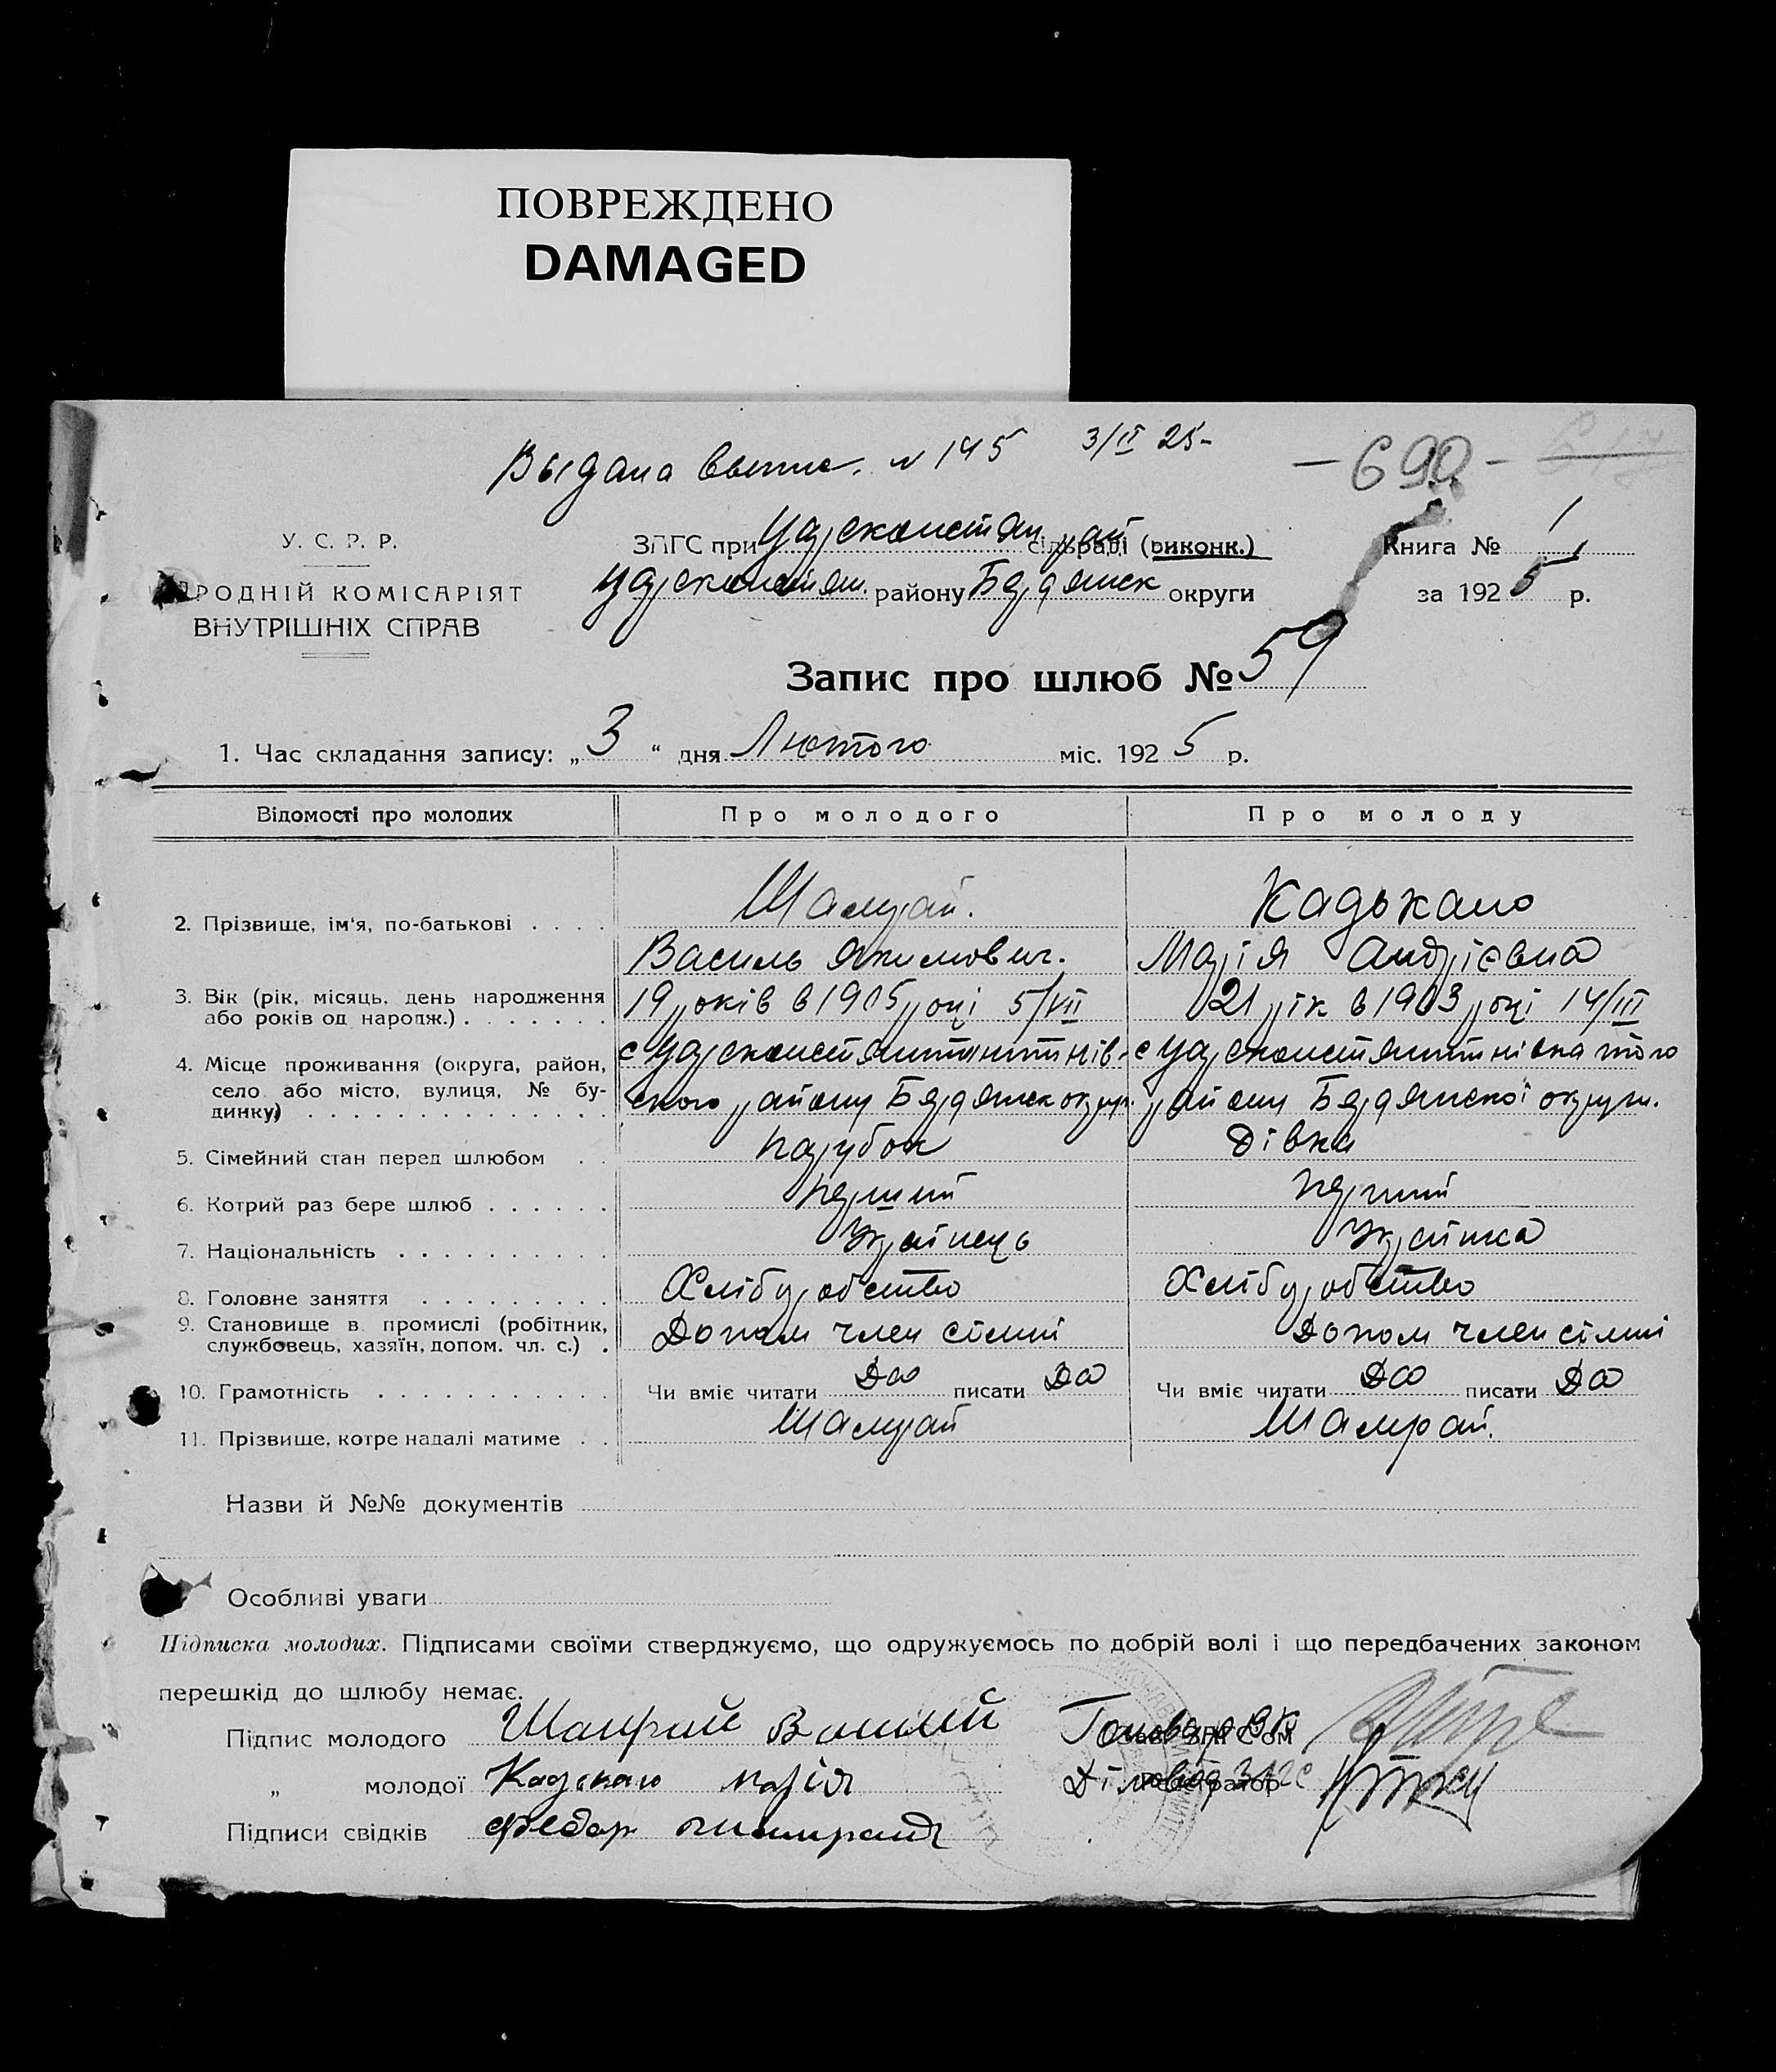 ПОВРЕЖДЕНО
DAMAGED
Выдана выпис. № 145 3/II 25-
- 690 -
У. С. Р. Р.
РОДНІЙ КОМІСАРІЯТ
ВНУТРІШНІХ СПРАВ
ЗАГС при Царсконстян рай сільраді (виконк.)
Царсконстян. району Бердянск округи
Книга № 1
за 1925 р.
Запис про шлюб № 59
1. Час складання запису: „ 3 “ дня Лютого міс. 1925 р.
Відомості про молодих Про молодого Про молоду
2. Прізвище, ім'я, по-батькові . . . . Шамрай. Кадькало
Василь Якимович. Марія Андрієвна
3. Вік (рік, місяць, день народження 19 років в 1905 році 5/VII 21 рік в 1903 році 14/III
або років од народж.) . . . . . . .
4. Місце проживання (округа, район, с Царсконстянтинів- с Царсконстянтнівка того
село або місто, вулиця, № бу-
динку) . . . . . . . . . . . . . . ского району Бердянск округ. району Бердянскої округи.
5. Сімейний стан перед шлюбом . . парубок дівка
6. Котрий раз бере шлюб . . . . . . перший перший
7. Національність . . . . . . . . . . Українець Українка
8. Головне заняття . . . . . . . . . Хліборобство Хліборобство
9. Становище в промислі (робітник, Допом член сімьі Допом член сімьі
службовець, хазяїн, допом. чл. с.) .
10. Грамотність . . . . . . . . . . . Чи вміє читати Да писати Да Чи вміє читати Да писати Да
11. Прізвище, котре надалі матиме . . Шамрай Шамрай.
Назви й №№ документів
Особливі уваги
Підписка молодих. Підписами своїми стверджуємо, що одружуємось по добрій волі і що передбачених законом
перешкід до шлюбу немає.
Підпис молодого Шамрай Василий Голова РВК
„ молодої Кадькало Марія Діловод ЗАГС
Підписи свідків Федор